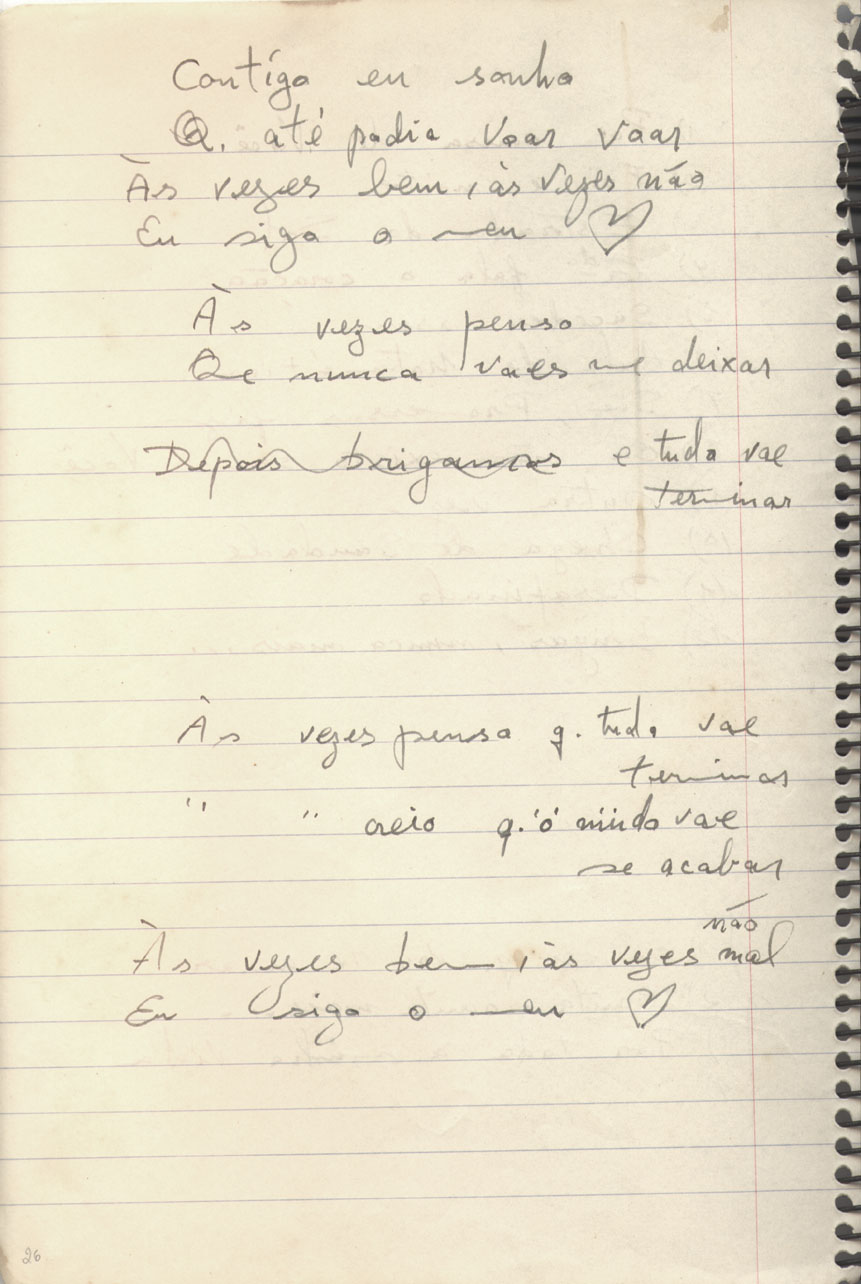 Contigo eu sonho
Q. até podia voar voar
Às vezes bem, às vezes não
Eu sigo o meu ♡
Às vezes penso
Que nunca vaes me deixar
Depois brigamos e tudo vae
terminar
Às vezes penso q. tudo vae
terminar
" " creio q. o mundo vae
se acabar
não
Às vezes bem, às vezes mal
Eu sigo o meu ♡
26